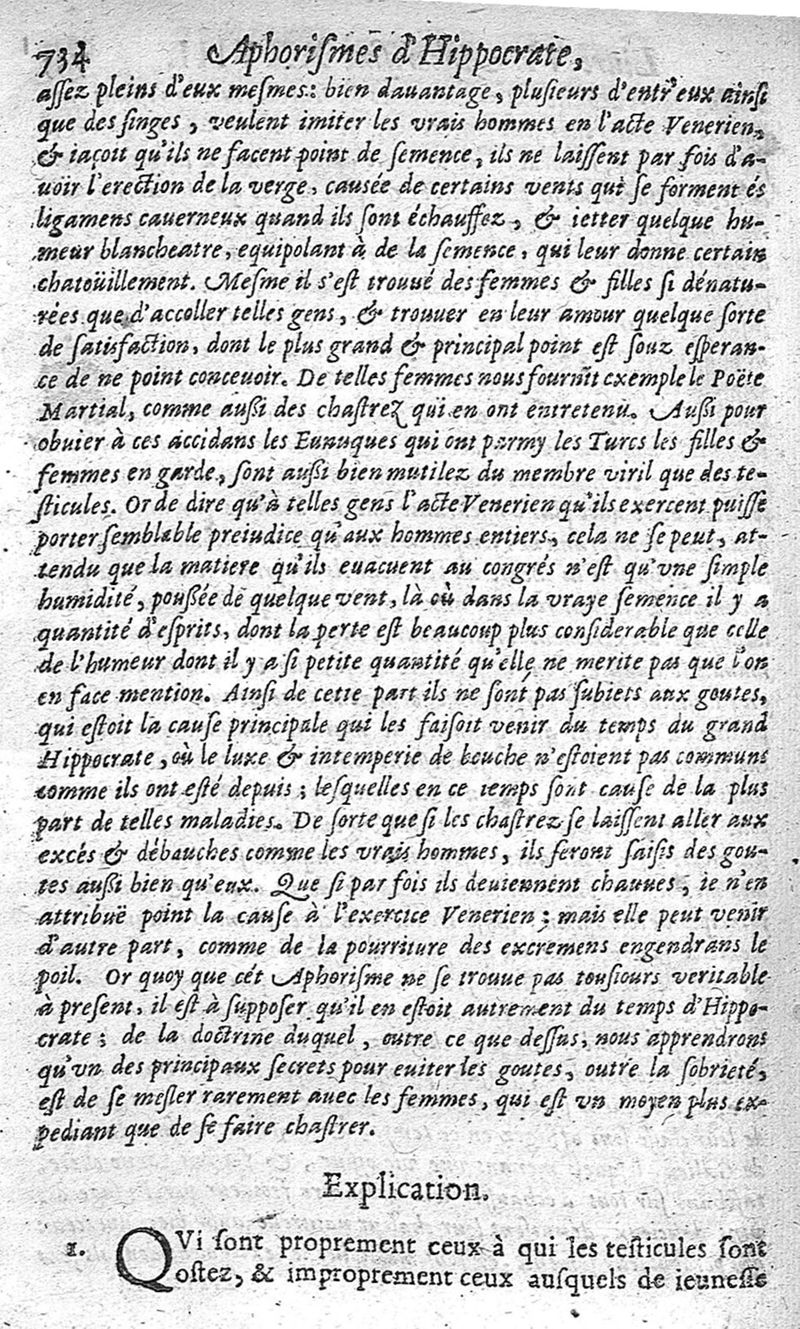 734 Aphoriſmes d'Hippocrate,
aſſez pleins d'eux meſmes: bien dauantage, pluſieurs d'entr'eux ainſi
que des ſinges, veulent imiter les vrais hommes en l'acte Venerien,
& iaçoit qu'ils ne facent point de ſemence, ils ne laiſſent par fois d'a-
uoir l'erection de la verge, cauſée de certains vents qui ſe forment és
ligamens cauerneux quand ils ſont échauffez, & ietter quelque hu-
meur blancheatre, equipolant à de la ſemence, qui leur donne certain
chatoüillement. Meſme il s'eſt trouué des femmes & filles ſi dénatu-
rées que d'accoller telles gens, & trouuer en leur amour quelque ſorte
de ſatisfaction, dont le plus grand & principal point eſt ſouz eſperan-
ce de ne point conceuoir. De telles femmes nous fournit exemple le Poëte
Martial, comme auſſi des chaſtrez qui en ont entretenu. Auſſi pour
obuier à ces accidans les Eunuques qui ont parmy les Turcs les filles &
femmes en garde, ſont auſſi bien mutilez du membre viril que des te-
ſticules. Or de dire qu'à telles gens l'acte Venerien qu'ils exercent puiſſe
porter ſemblable preiudice qu'aux hommes entiers, cela ne ſe peut, at-
tendu que la matiere qu'ils euacuent au congrés n'eſt qu'vne ſimple
humidité, pouſſée de quelque vent, là où dans la vraye ſemence il y a
quantité d'eſprits, dont la perte eſt beaucoup plus conſiderable que celle
de l'humeur dont il y a ſi petite quantité qu'elle ne merite pas que l'on
en face mention. Ainſi de cette part ils ne ſont pas ſubiets aux goutes,
qui eſtoit la cauſe principale qui les faiſoit venir du temps du grand
Hippocrate, où le luxe & intemperie de bouche n'eſtoient pas communs
comme ils ont eſté depuis; leſquelles en ce temps ſont cauſe de la plus
part de telles maladies. De ſorte que ſi les chaſtrez ſe laiſſent aller aux
excés & débauches comme les vrais hommes, ils ſeront ſaiſis des gou-
tes auſſi bien qu'eux. Que ſi par fois ils deuiennent chauues, ie n'en
attribuë point la cauſe à l'exercice Venerien; mais elle peut venir
d'autre part, comme de la pourriture des excremens engendrans le
poil. Or quoy que cét Aphoriſme ne ſe trouue pas touſiours veritable
à preſent, il eſt à ſuppoſer qu'il en eſtoit autrement du temps d'Hippo-
crate; de la doctrine duquel, outre ce que deſſus, nous apprendrons
qu'vn des principaux ſecrets pour euiter les goutes, outre la ſobrieté,
eſt de ſe meſler rarement auec les femmes, qui eſt vn moyen plus ex-
pediant que de ſe faire chaſtrer.
Explication.
1. QVi ſont proprement ceux à qui les teſticules ſont
oſtez, & improprement ceux auſquels de ieuneſſe